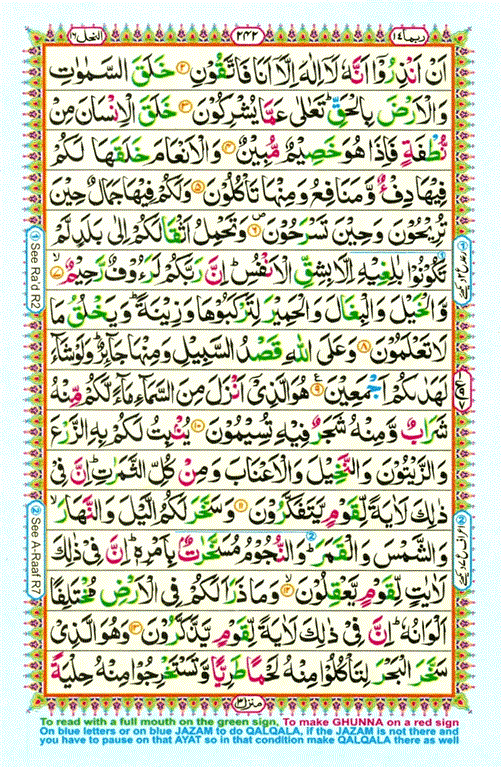 ربما ١٤
٢٤٢
النحل ١٦
اَنْ اَنْذِرُوْۤا اَنَّهٗ لَاۤ اِلٰهَ اِلَّاۤ اَنَا فَاتَّقُوْنِ ﴿۲﴾ خَلَقَ السَّمٰوٰتِ
وَالْاَرْضَ بِالْحَقِّ ؕ تَعٰلٰی عَمَّا یُشْرِكُوْنَ ﴿۳﴾ خَلَقَ الْاِنْسَانَ مِنْ
نُّطْفَةٍ فَاِذَا هُوَ خَصِیْمٌ مُّبِیْنٌ ﴿۴﴾ وَالْاَنْعَامَ خَلَقَهَا ۚ لَكُمْ
فِیْهَا دِفْءٌ وَّمَنَافِعُ وَمِنْهَا تَاْكُلُوْنَ ﴿۵﴾ وَلَكُمْ فِیْهَا جَمَالٌ حِیْنَ
تُرِیْحُوْنَ وَحِیْنَ تَسْرَحُوْنَ ﴿۶﴾ وَتَحْمِلُ اَثْقَالَكُمْ اِلٰی بَلَدٍ لَّمْ
تَكُوْنُوْا بٰلِغِیْهِ اِلَّا بِشِقِّ الْاَنْفُسِ ؕ اِنَّ رَبَّكُمْ لَرَءُوْفٌ رَّحِیْمٌ ﴿۷﴾
وَّالْخَیْلَ وَالْبِغَالَ وَالْحَمِیْرَ لِتَرْكَبُوْهَا وَزِیْنَةً ؕ وَیَخْلُقُ مَا
لَا تَعْلَمُوْنَ ﴿۸﴾ وَعَلَی اللّٰهِ قَصْدُ السَّبِیْلِ وَمِنْهَا جَآىِٕرٌ ؕ وَلَوْ شَآءَ
لَهَدٰىكُمْ اَجْمَعِیْنَ ﴿۹﴾ هُوَ الَّذِیْۤ اَنْزَلَ مِنَ السَّمَآءِ مَآءً لَّكُمْ مِّنْهُ
شَرَابٌ وَّمِنْهُ شَجَرٌ فِیْهِ تُسِیْمُوْنَ ﴿۱۰﴾ یُنْۢبِتُ لَكُمْ بِهِ الزَّرْعَ
وَالزَّیْتُوْنَ وَالنَّخِیْلَ وَالْاَعْنَابَ وَمِنْ كُلِّ الثَّمَرٰتِ ؕ اِنَّ فِیْ
ذٰلِكَ لَاٰیَةً لِّقَوْمٍ یَّتَفَكَّرُوْنَ ﴿۱۱﴾ وَسَخَّرَ لَكُمُ الَّیْلَ وَالنَّهَارَ ۙ
وَالشَّمْسَ وَالْقَمَرَ ؕ وَالنُّجُوْمُ مُسَخَّرٰتٌۢ بِاَمْرِهٖ ؕ اِنَّ فِیْ ذٰلِكَ
لَاٰیٰتٍ لِّقَوْمٍ یَّعْقِلُوْنَ ﴿۱۲﴾ وَمَا ذَرَاَ لَكُمْ فِی الْاَرْضِ مُخْتَلِفًا
اَلْوَانُهٗ ؕ اِنَّ فِیْ ذٰلِكَ لَاٰیَةً لِّقَوْمٍ یَّذَّكَّرُوْنَ ﴿۱۳﴾ وَهُوَ الَّذِیْ
سَخَّرَ الْبَحْرَ لِتَاْكُلُوْا مِنْهُ لَحْمًا طَرِیًّا وَّتَسْتَخْرِجُوْا مِنْهُ حِلْیَةً
① See Ra'd R2
② See A-Raaf R7
منزل ٣
To read with a full mouth on the green sign, To make GHUNNA on a red sign
On blue letters or on blue JAZAM to do QALQALA, if the JAZAM is not there and
you have to pause on that AYAT so in that condition make QALQALA there as well